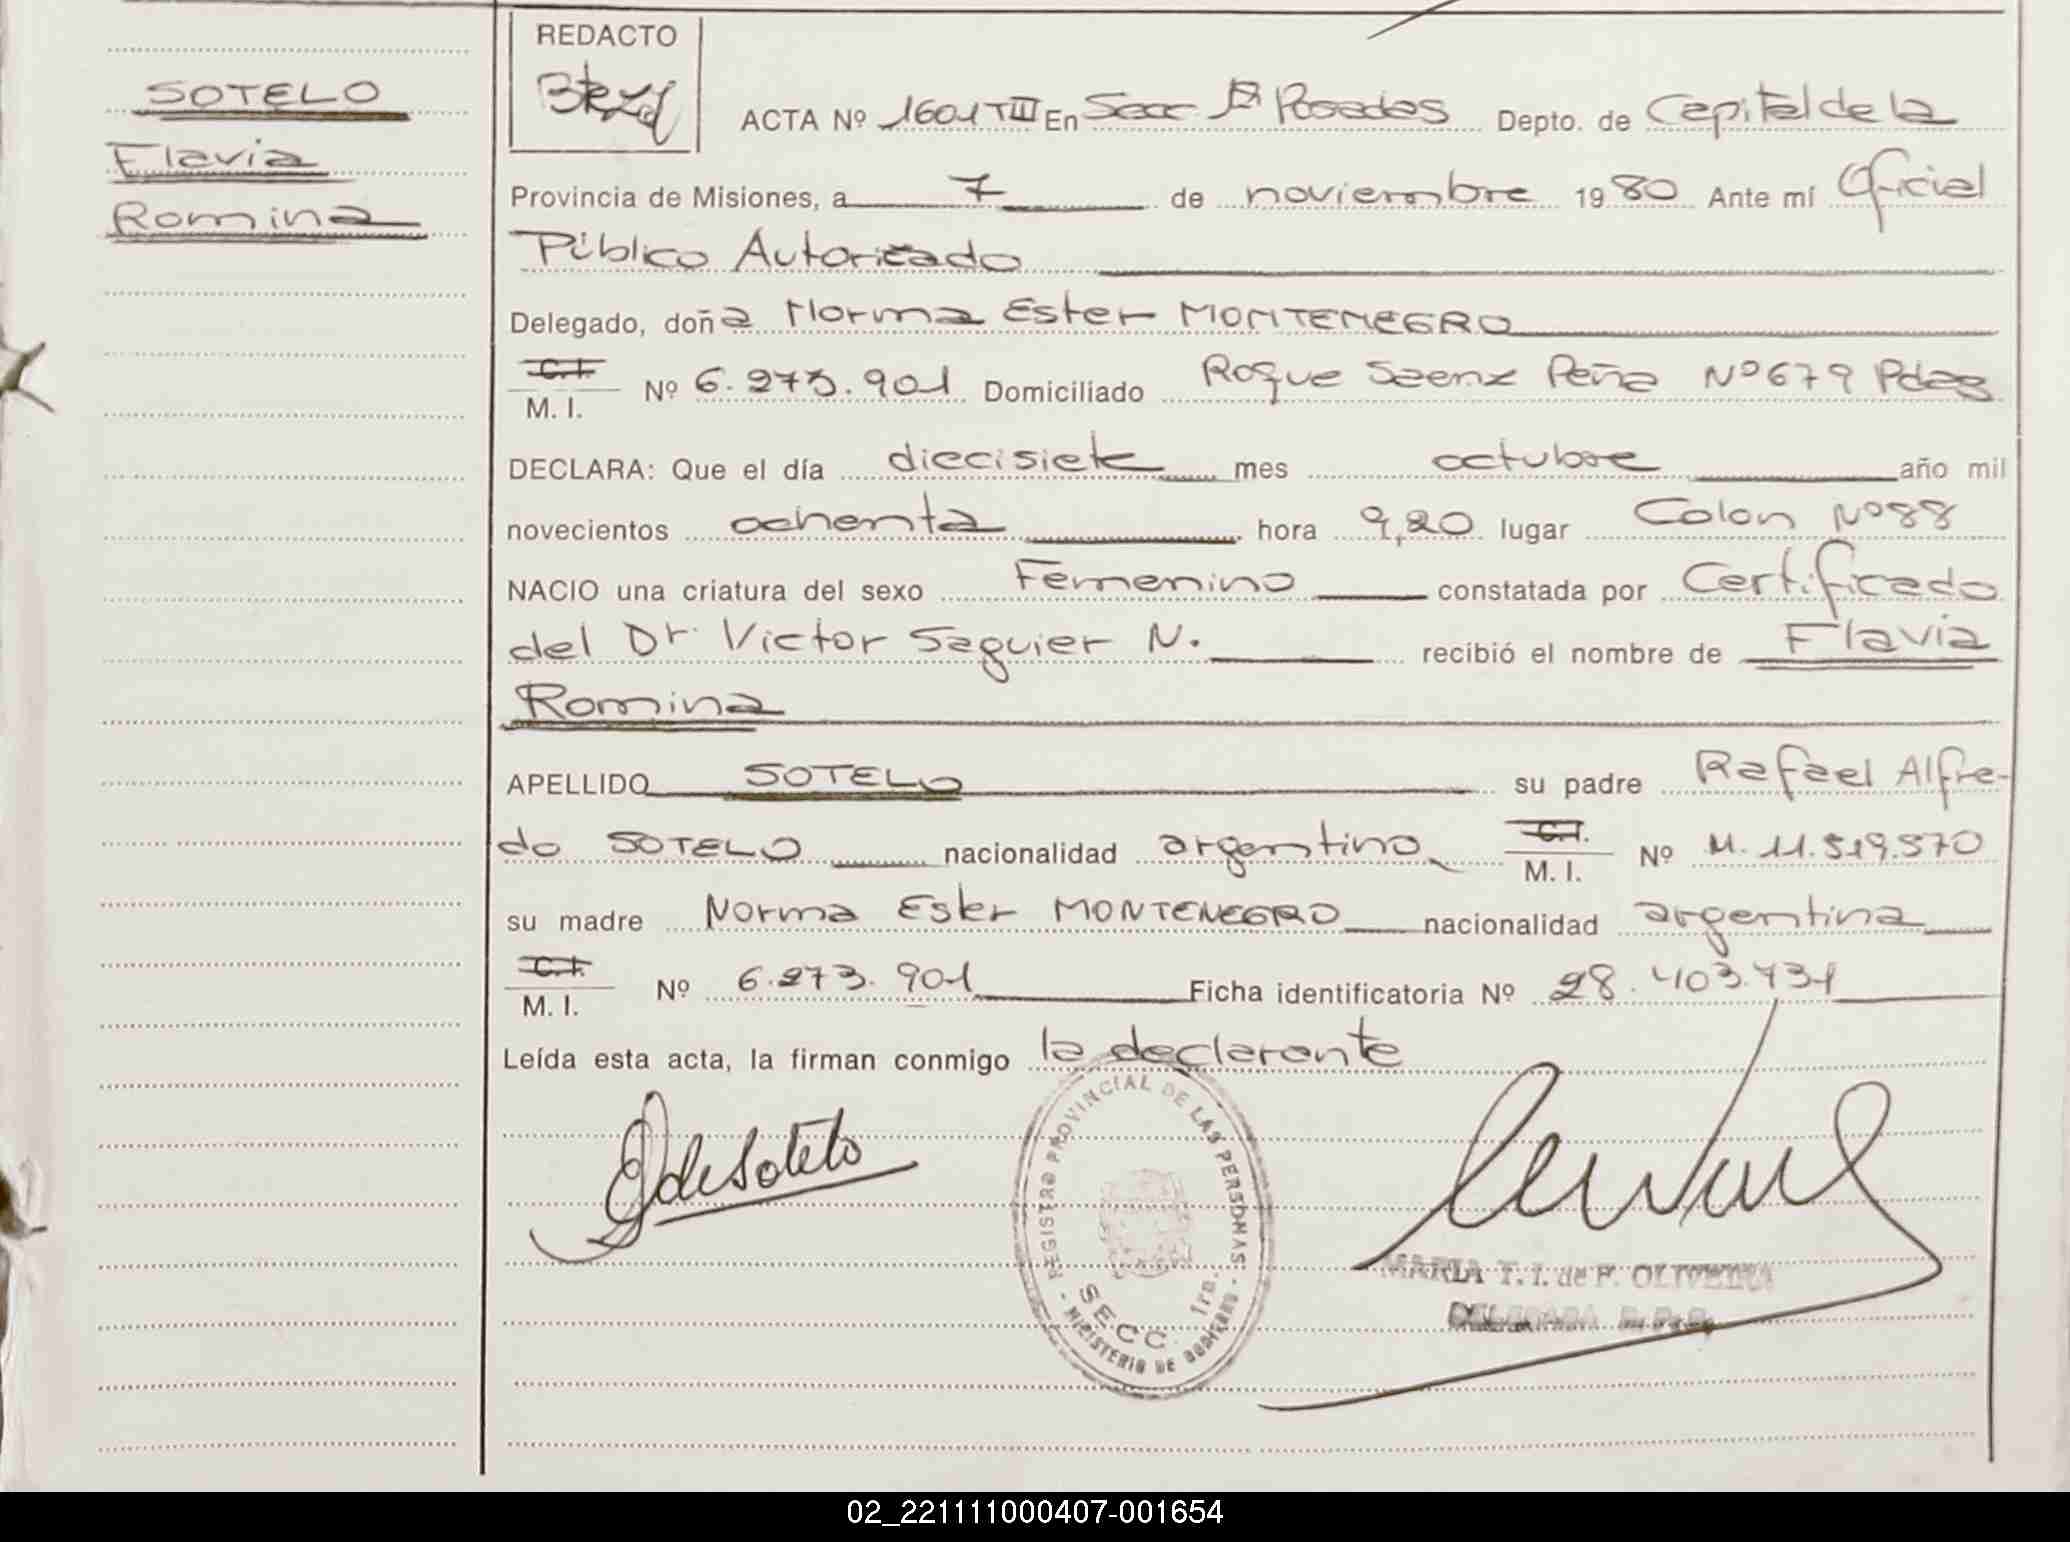 SOTELO
Flavia
Romina
REDACTO
ACTA Nº 1601 TIII En Secc 1ª Posadas Depto. de Capital de la
Provincia de Misiones, a 7 de noviembre 1980 Ante mí Oficial
Público Autorizado
Delegado, doña Norma Ester MONTENEGRO
C.I.
M. I. Nº 6.273.901 Domiciliado Roque Saenz Peña Nº 679 Pdas
DECLARA: Que el día diecisiete mes octubre año mil
novecientos ochenta hora 9,20 lugar Colon Nº 88
NACIO una criatura del sexo Femenino constatada por Certificado
del Dr. Victor Saguier N. recibió el nombre de Flavia
Romina
APELLIDO SOTELO su padre Rafael Alfre-
do SOTELO nacionalidad argentino C.I.
M. I. Nº M. 11.519.570
su madre Norma Ester MONTENEGRO nacionalidad argentina
C.I.
M. I. Nº 6.273.901 Ficha identificatoria Nº 28.403.431
Leída esta acta, la firman conmigo la declarante
de Sotelo
REGISTRO PROVINCIAL DE LAS PERSONAS
SECC. 1ra.
- MINISTERIO DE GOBIERNO -
MARIA T. I. de F. OLIVEIRA
DELEGADA R. P. P.
02_221111000407-001654